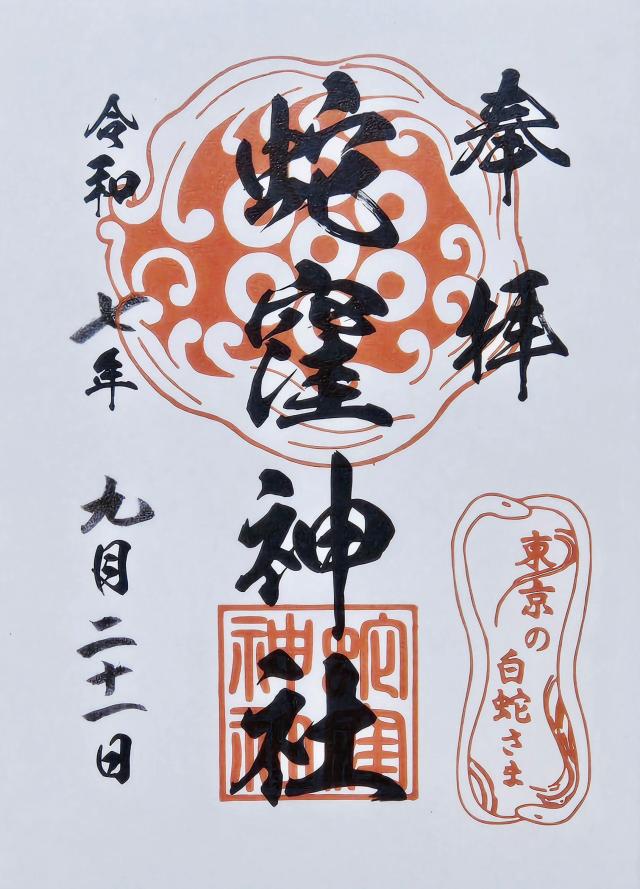 奉拝
蛇窪神社
蛇窪
神社
東京の
白蛇さま
令和七年九月二十一日